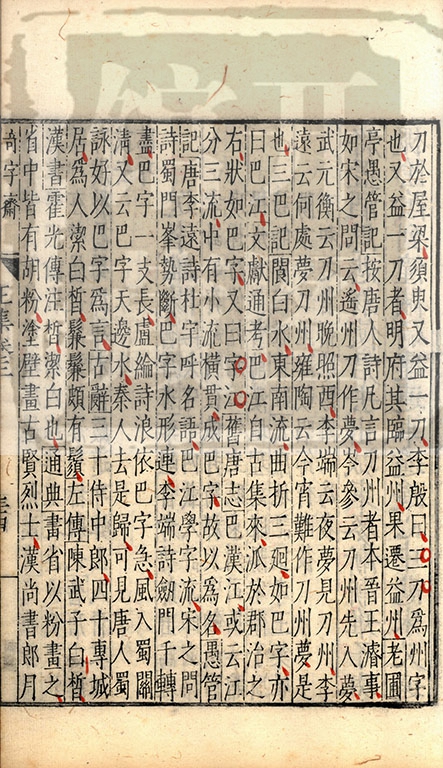 刀於屋梁須臾又益一刀李殷曰三刀爲州字
也又益一刀者明府其臨益州果遷益州老圃
亭愚管記按唐人詩凡言刀州者本晉王濬事
如宋之問云遙州刀作夢岑參云刀州先入夢
武元衡云刀州晚照西李端云夜夢見刀州李
遠云何處夢刀州雍陶云今宵難作刀州夢是
也三巴記閬白水東南流曲折三廻如巴字亦
曰巴江文獻通考巴江自古集來派於郡治之
右狀如巴字又曰字江舊唐志巴漢江或云江
分三流中有小流橫貫成巴字故以爲名愚管
記唐李遠詩杜宇呼名語巴江學字流宋之問
詩蜀門峯勢斷巴字水形連李端詩劒門千轉
盡巴字一支長盧綸詩浪依巴字息風入蜀關
清又云巴字天邊水秦人去是歸可見唐人蜀
詠好以巴字爲言古辭三十侍中郎四十專城
居爲人潔白皙鬑鬑頗有鬚左傳陳武子白皙
漢書霍光傳注皙潔白也通典書省以粉畫之
省中皆有胡粉塗壁畫古賢烈士漢尚書郎月
奇字齋